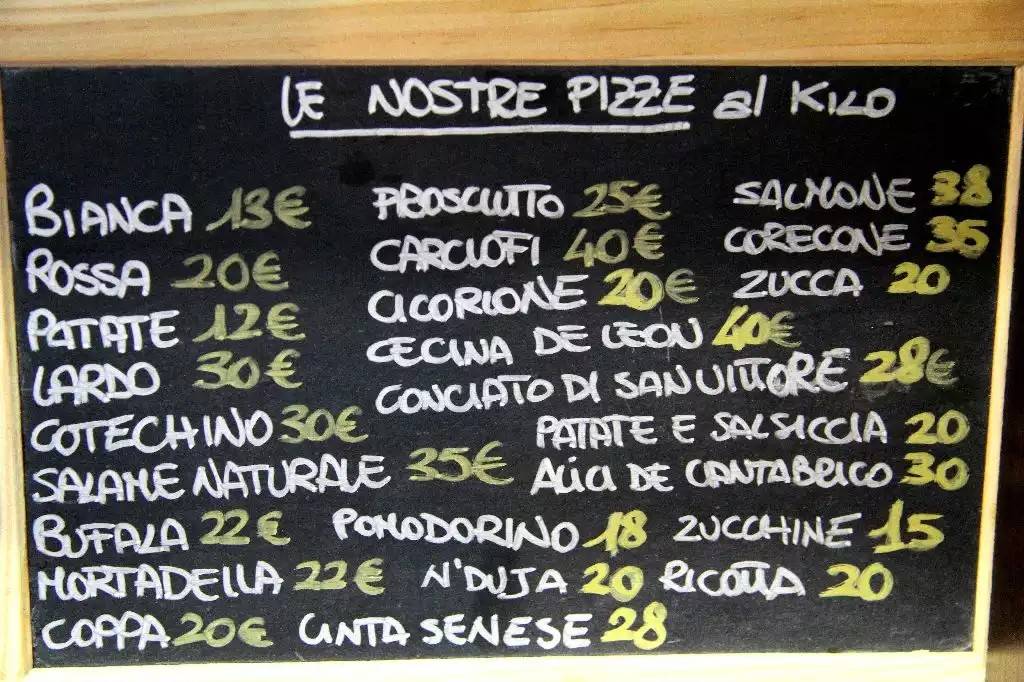 LE NOSTRE PIZZE al KILO
BIANCA 13€ PROSCIUTTO 25€ SALMONE 38
ROSSA 20€ CARCIOFI 40€ CORECONE 35
PATATE 12€ CICORIONE 20€ ZUCCA 20
LARDO 30€ CECINA DE LEON 40€
CONCIATO DI SAN VITTORE 28€
COTECHINO 30€ PATATE E SALSICCIA 20
SALAME NATURALE 35€ ALICI DE CANTABRICO 30
BUFALA 22€ POMODORINO 18 ZUCCHINE 15
MORTADELLA 22€ N'DUJA 20 RICOTTA 20
COPPA 20€ CINTA SENESE 28